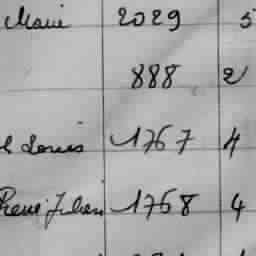 Marie 2029 5
888 2
Louis 1767 4
René Julien 1768 4